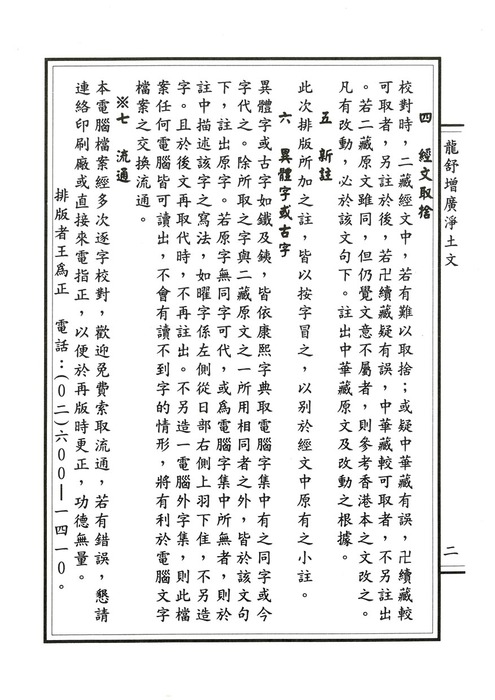 龍舒增廣淨土文
二
四　經文取捨
校對時，二藏經文中，若有難以取捨；或疑中華藏有誤，卍續藏較
可取者，另註於後，若卍續藏疑有誤，中華藏較可取者，不另註出
。若二藏原文雖同，但仍覺文意不屬者，則參考香港本之文改之。
凡有改動，必於該文句下。註出中華藏原文及改動之根據。
五　新註
此次排版所加之註，皆以按字冒之，以別於經文中原有之小註。
六　異體字或古字
異體字或古字如鐵及銕，皆依康熙字典取電腦字集中有之同字或今
字代之。除所取之字與二藏原文之一所用相同者之外，皆於該文句
下，註出原字。若原字無同字可代，或為電腦字集中所無者，則於
註中描述該字之寫法，如曜字係左側從日部右側上羽下住，不另造
字。且於後文再取代時，不再註出。不另造一電腦外字集，則此檔
案任何電腦皆可讀出，不會有讀不到字的情形，將有利於電腦文字
檔案之交換流通。
※七　流通
本電腦檔案經多次逐字校對，歡迎免費索取流通，若有錯誤，懇請
連絡印刷廠或直接來電指正，以便於再版時更正，功德無量。
排版者王為正　電話：(０二)六００—一四一０。